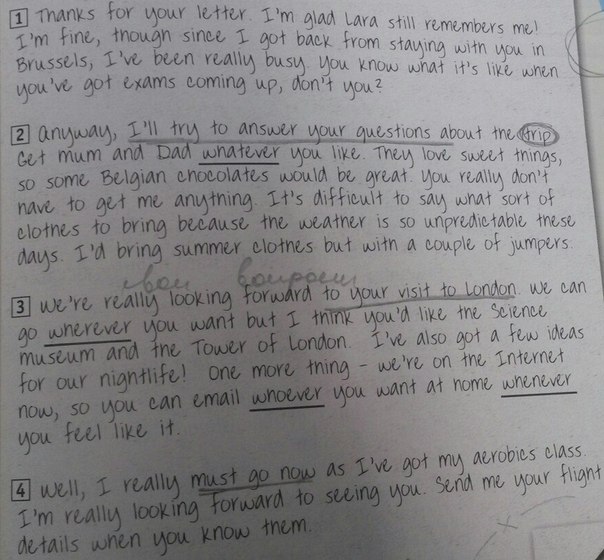 1 Thanks for your letter. I'm glad Lara still remembers me!
I'm fine, though since I got back from staying with you in
Brussels, I've been really busy. You know what it's like when
you've got exams coming up, don't you?
2 Anyway, I'll try to answer your questions about the trip
Get Mum and Dad whatever you like. They love sweet things,
so some Belgian chocolates would be great. You really don't
have to get me anything. It's difficult to say what sort of
clothes to bring because the weather is so unpredictable these
days. I'd bring summer clothes but with a couple of jumpers.
свои вопросы
3 We're really looking forward to your visit to London. We can
go wherever you want but I think you'd like the Science
Museum and the Tower of London. I've also got a few ideas
for our nightlife! One more thing – we're on the Internet
now, so you can email whoever you want at home whenever
you feel like it.
4 Well, I really must go now as I've got my aerobics class.
I'm really looking forward to seeing you. Send me your flight
details when you know them.